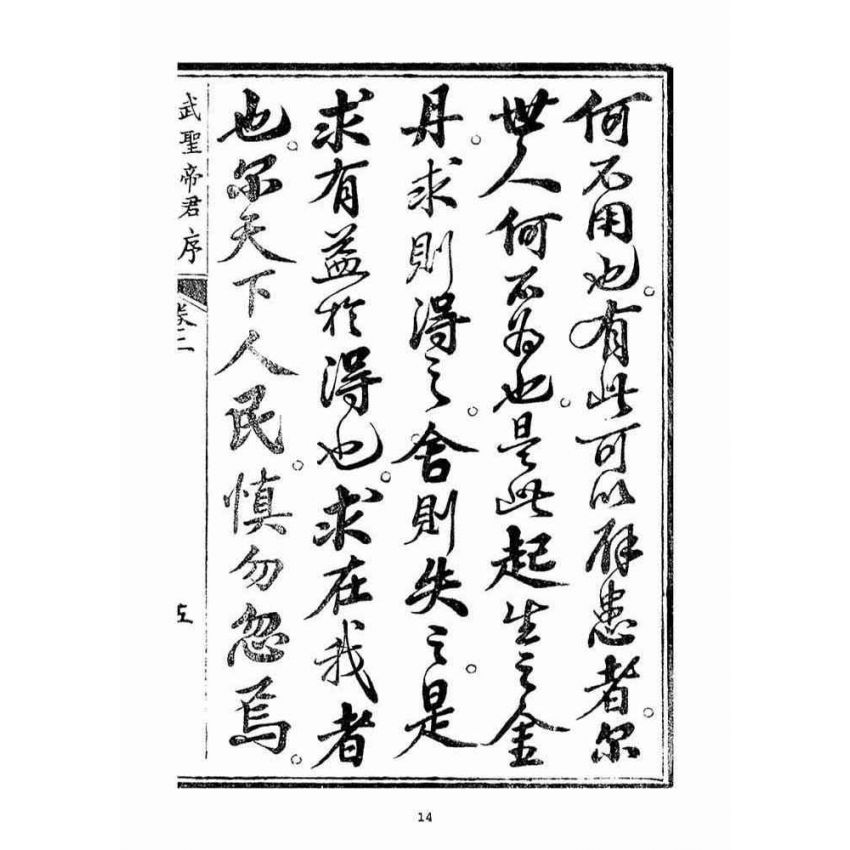 何不用也有此可以辟患者尔
世人何不为也是此起生之金
丹求則淂之舍則失之是
求有益於淂也求在我者
也尔天下人民慎勿忽焉
武聖帝君序
卷二
五
14